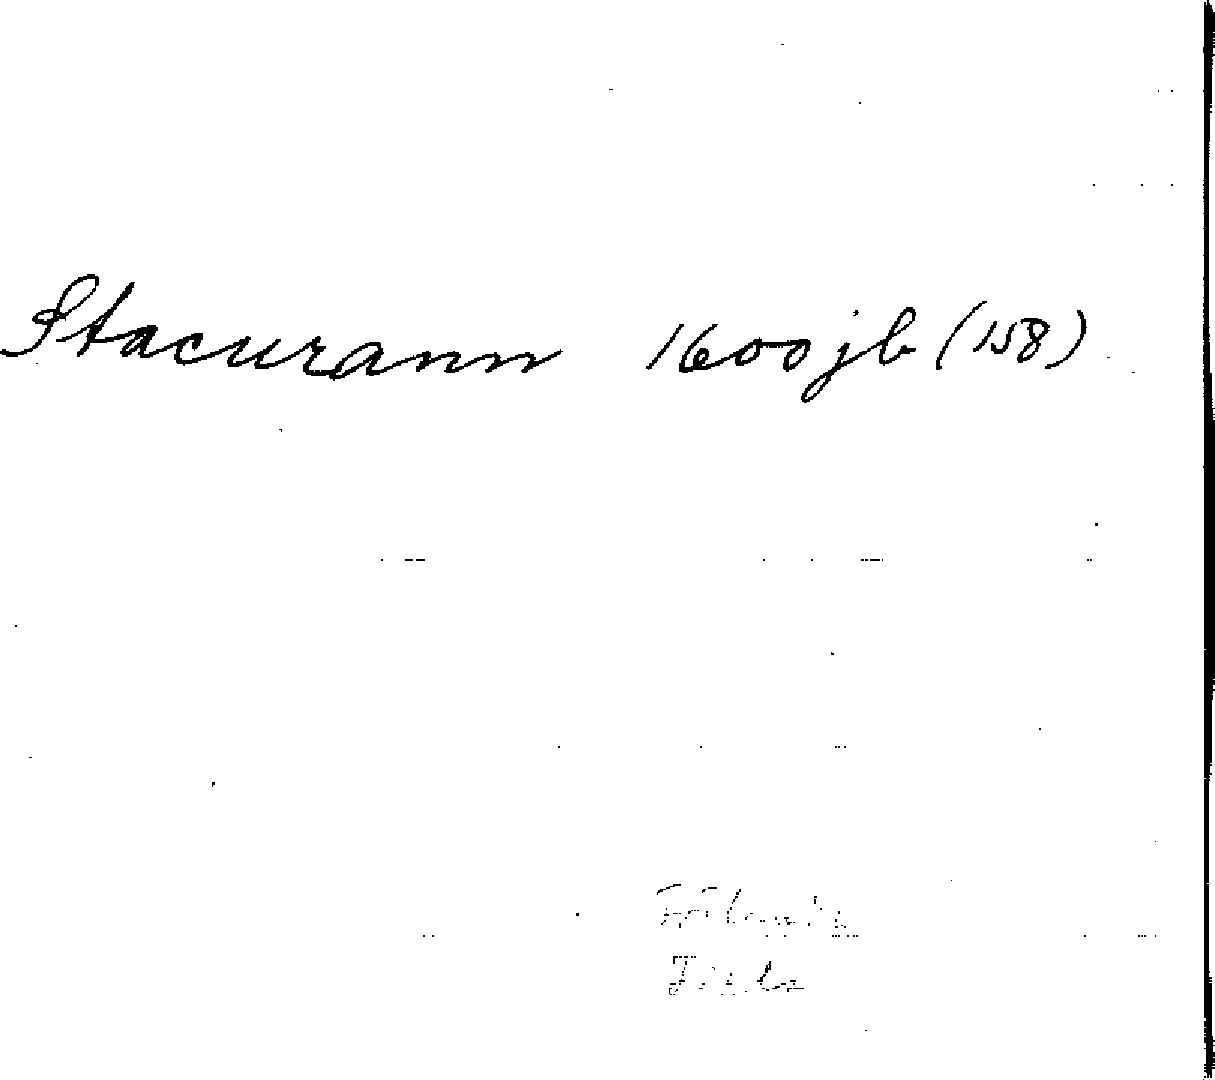 Stacurann 1600 jb (158)